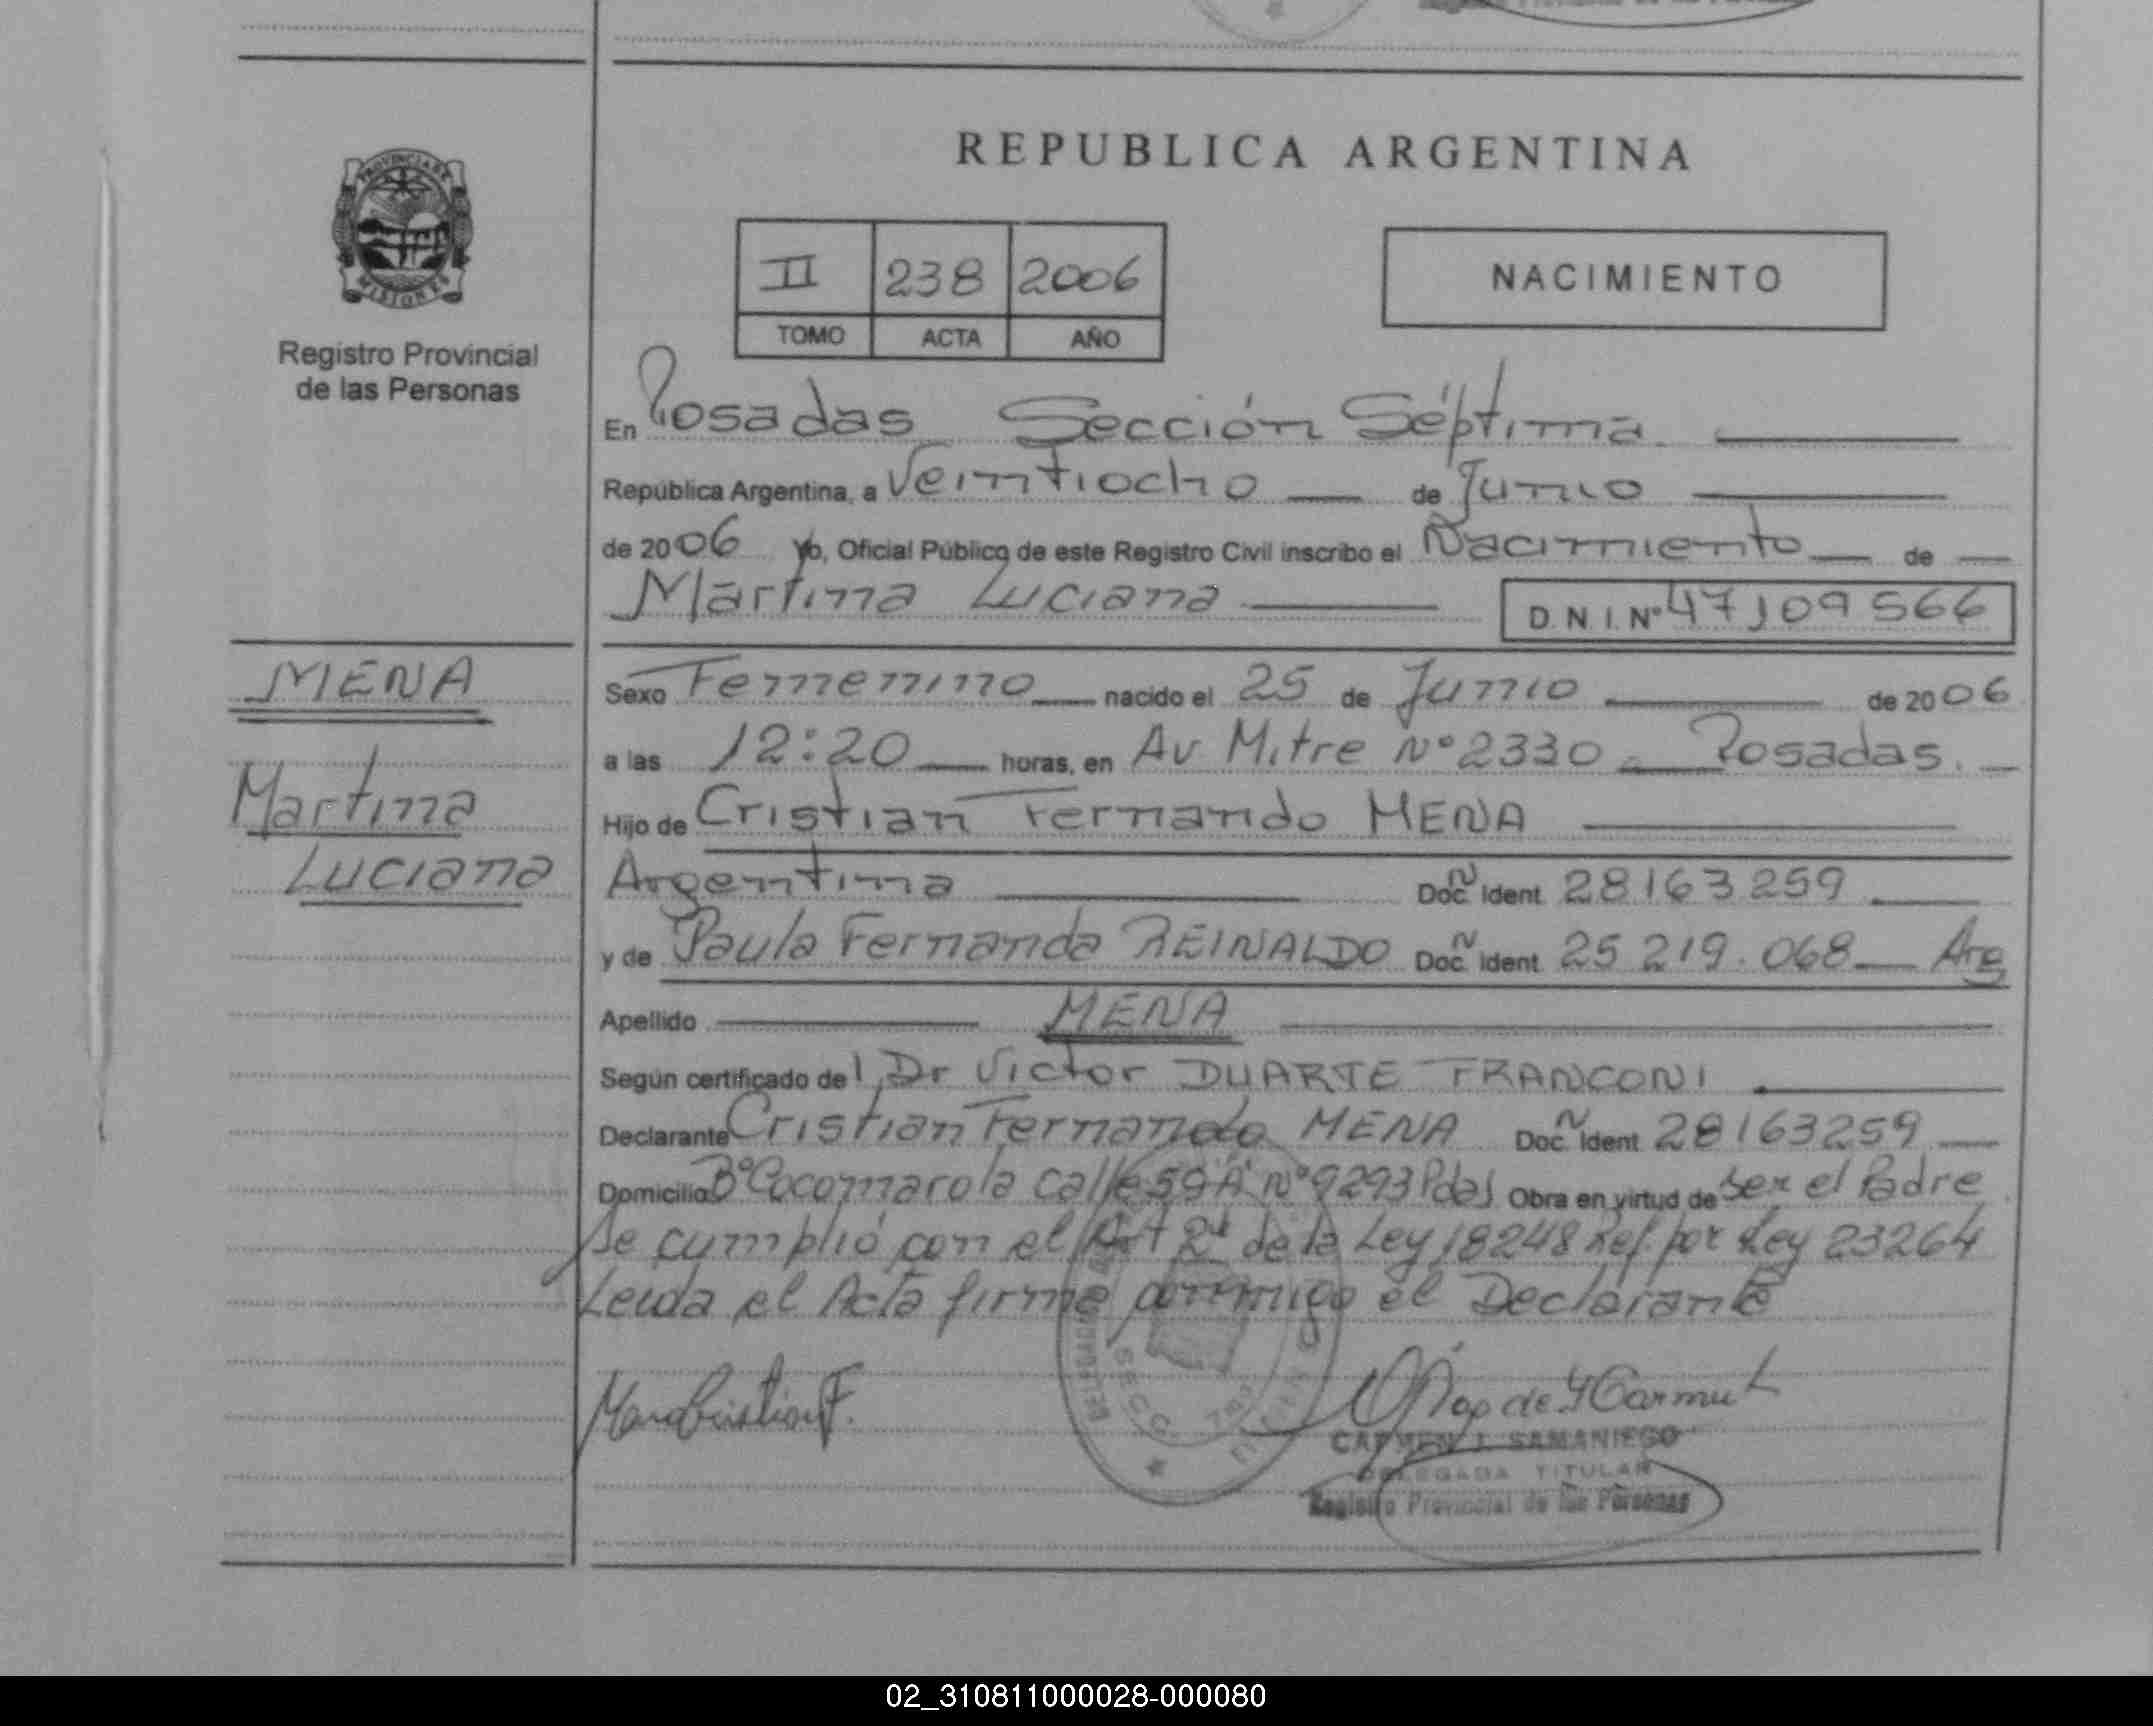 REPUBLICA ARGENTINA
PROVINCIA DE
MISIONES
Registro Provincial
de las Personas
II 238 2006
TOMO ACTA AÑO
NACIMIENTO
En Posadas Sección Séptima
República Argentina, a Veintiocho de Junio
de 2006 Yo, Oficial Público de este Registro Civil inscribo el Nacimiento de
Martina Luciana D.N.I. Nº 47109566
MENA
Martina
Luciana
Sexo Femenino nacido el 25 de Junio de 2006
a las 12:20 horas, en Av Mitre Nº 2330 Posadas.
Hijo de Cristian Fernando MENA
Argentina Doc. Ident 28163259
y de Paula Fernanda REINALDO Doc. Ident 25 219.068 Arg
Apellido MENA
Según certificado del Dr Victor DUARTE FRANCONI
Declarante Cristian Fernando MENA Doc. Ident 28163259
Domicilio Bº Cocomarola calle 59 A nº 9293 Pdas Obra en virtud de Ser el Padre
Se cumplió con el Art 2º de la Ley 18248 Ref. por Ley 23264
Leida el Acta firma conmigo el Declarante
Mena Cristian F.
CARMEN I. SAMANIEGO
DELEGADA TITULAR
Registro Provincial de las Personas
02_310811000028-000080